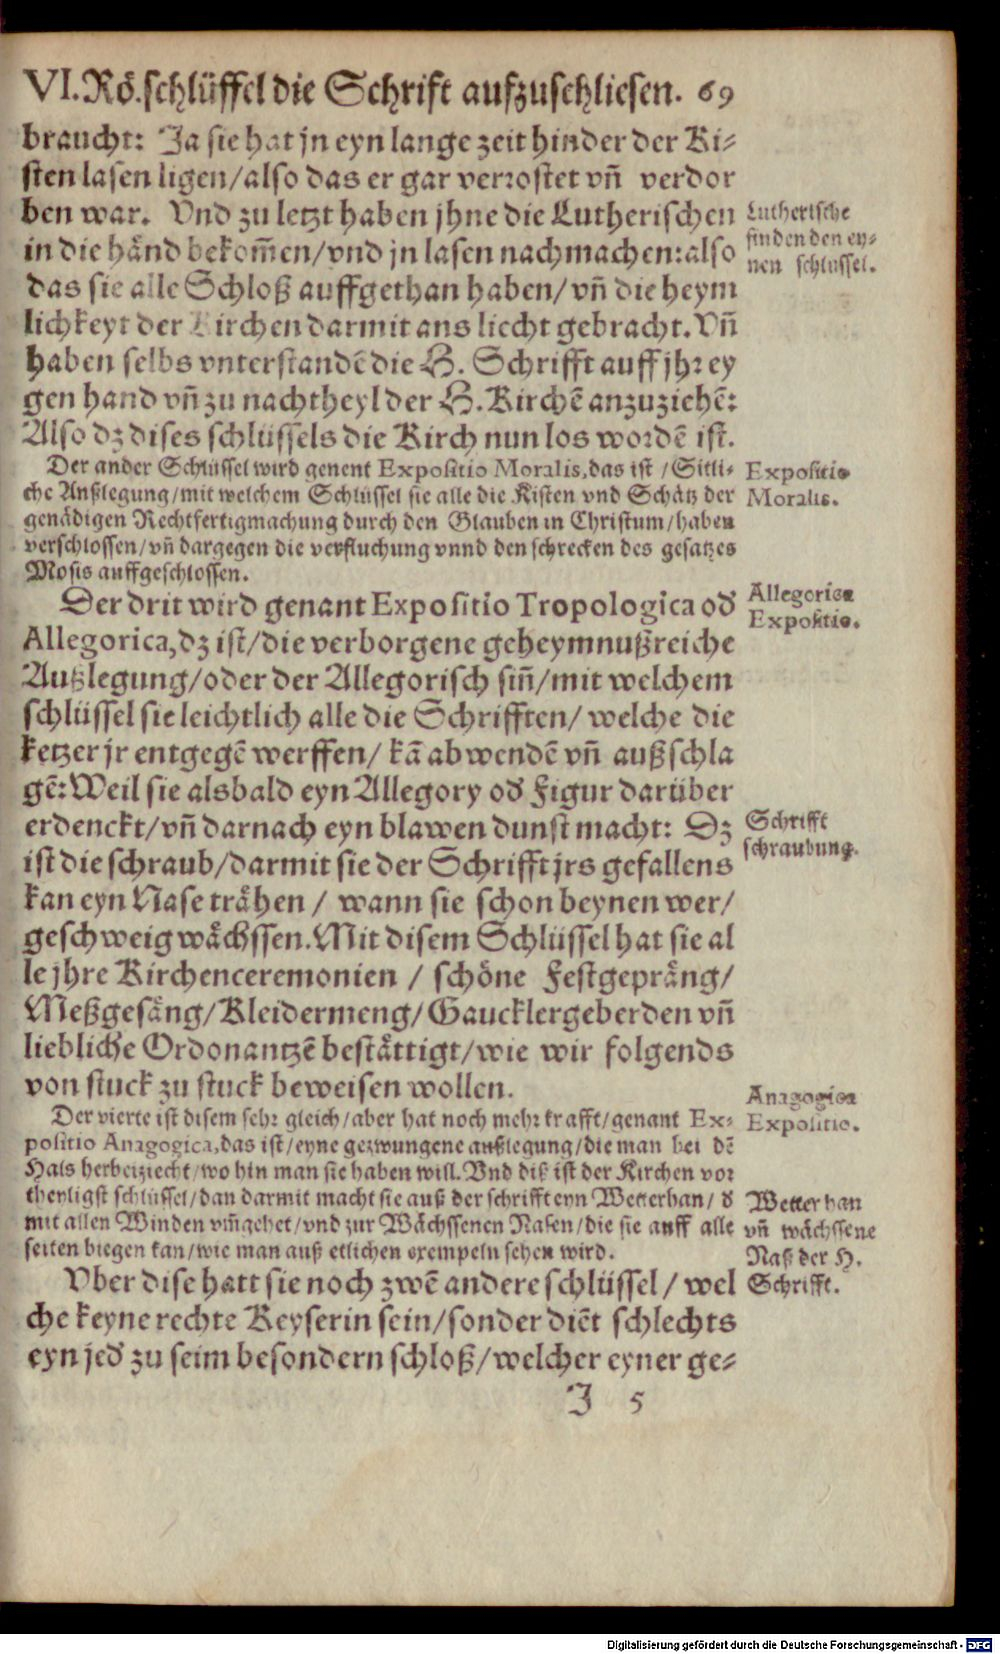 VI. Rö. schlüssel die Schrift aufzuschliesen. 69
braucht: Ja sie hat jn eyn lange zeit hinder der Ki⸗
sten lasen ligen/also das er gar verrostet vñ verdor
ben war. Vnd zu letzt haben jhne die Lutherischen
in die händ bekom̃en/vnd jn lasen nachmachen: also
das sie alle Schloß auffgethan haben/ vñ die heym
lichkeyt der Kirchen darmit ans liecht gebracht. Vñ
haben selbs vnterstandẽ die H. Schrifft auff jhr ey
gen hand vñ zu nachtheyl der H. Kirchẽ anzuziehẽ:
Also dz dises schlüssels die Kirch nun los wordẽ ist.
Lutherische
finden den ey⸗
nen schlüssel.
Der ander Schlüssel wird genent Expositio Moralis, das ist / Sitli⸗
che Außlegung/mit welchem Schlüssel sie alle die Kisten vnd Schätz der
genädigen Rechtfertigmachung durch den Glauben in Christum/haben
verschlossen/vñ dargegen die verfluchung vnnd den schrecken des gesatzes
Mosis auffgeschlossen.
Expositio
Moralis.
Der drit wird genant Expositio Tropologica od̕
Allegorica, dz ist/die verborgene geheymnußreiche
Außlegung/oder der Allegorisch siñ/mit welchem
schlüssel sie leichtlich alle die Schrifften/ welche die
ketzer jr entgegẽ werffen/ kã abwendẽ vñ außschla
gẽ: Weil sie alsbald eyn Allegory od̕ Figur darüber
erdenckt/vñ darnach eyn blawen dunst macht: Dz
ist die schraub/darmit sie der Schrifft jrs gefallens
kan eyn Nase trähen / wann sie schon beynen wer/
geschweig wächssen. Mit disem Schlüssel hat sie al
le jhre Kirchenceremonien / schöne Festgepräng/
Meßgesäng/Kleidermeng/Gaucklergeberden vñ
liebliche Ordonantzẽ bestättigt/wie wir folgends
von stuck zu stuck beweisen wollen.
Allegorica
Expositio.
Schrifft
schraubung.
Der vierte ist disem sehr gleich/aber hat noch mehr krafft/genant Ex⸗
positio Anagogica, das ist/eyne gezwungene außlegung/die man bei dẽ
Hals herbeiziecht/wo hin man sie haben will. Vnd diß ist der Kirchen vor
theyligst schlüssel/dan darmit macht sie auß der schrifft eyn Wetterhan/ d̕
mit allen Winden vm̃gehet/vnd zur Wächssenen Nasen/die sie auff alle
seiten biegen kan/wie man auß etlichen exempeln sehen wird.
Anagogica
Expositio.
Wetterhan
vñ wächssene
Naß der H.
Schrifft.
Vber dise hatt sie noch zwẽ andere schlüssel / wel
che keyne rechte Keyserin sein/sonder diẽt schlechts
eyn jed̕ zu seim besondern schloß/welcher eyner ge⸗
J 5
Digitalisierung gefördert durch die Deutsche Forschungsgemeinschaft - DFG